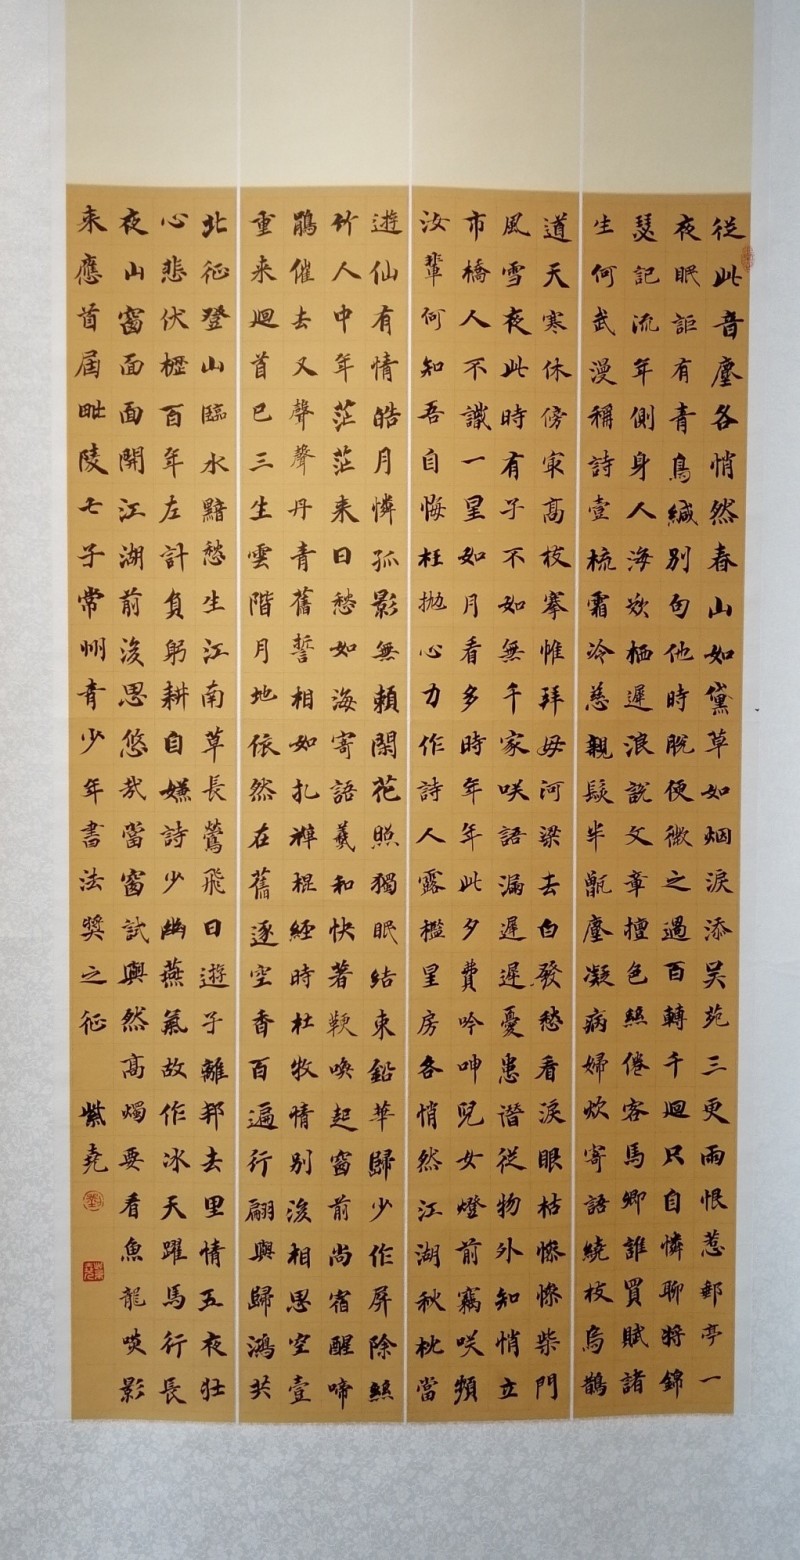 從此音塵各悄然春山如黛草如烟淚添吳苑三更雨恨惹郵亭一
夜眠詎有青鳥緘別句他時脫便微之過百轉千迴只自憐聊將錦
瑟記流年側身人海歎栖遲浪說文章擅色絲倦客馬卿誰買賦諸
生何武漫稱詩壹梳霜冷慈親髮半甑塵凝病婦炊寄語繞枝烏鵲
道天寒休傍㝡高枝搴惟拜母河梁去白發愁看淚眼枯慘慘柴門
風雪夜此時有子不如無千家咲語漏遲遲憂患譖從物外知悄立
市橋人不識一星如月看多時年年此夕費吟呻兒女燈前竊咲頻
汝輩何知吾自悔枉拋心力作詩人露檻星房各悄然江湖秋枕當
遊仙有情皓月憐孤影無賴閑花照獨眠結束鉛華歸少作屏除絲
竹人中年茫茫來日愁如海寄語羲和快著鞭喚起窗前尚宿醒啼
鵑催去又聲聲丹青舊誓相如札禪榻經時杜牧情別後相思空壹
重來迴首已三生雲階月地依然在舊逐空香百遍行翩與歸鴻共
北征登山臨水黯愁生江南草長鶯飛日遊子離邦去里情五夜壯
心悲伏櫪百年左計負躬耕自嫌詩少幽燕氣故作冰天躍馬行長
夜山窗面面開江湖前後思悠哉當窗試與然高燭要看魚龍啖影
來應首屆毗陵七子常州青少年書法獎之征 紫堯